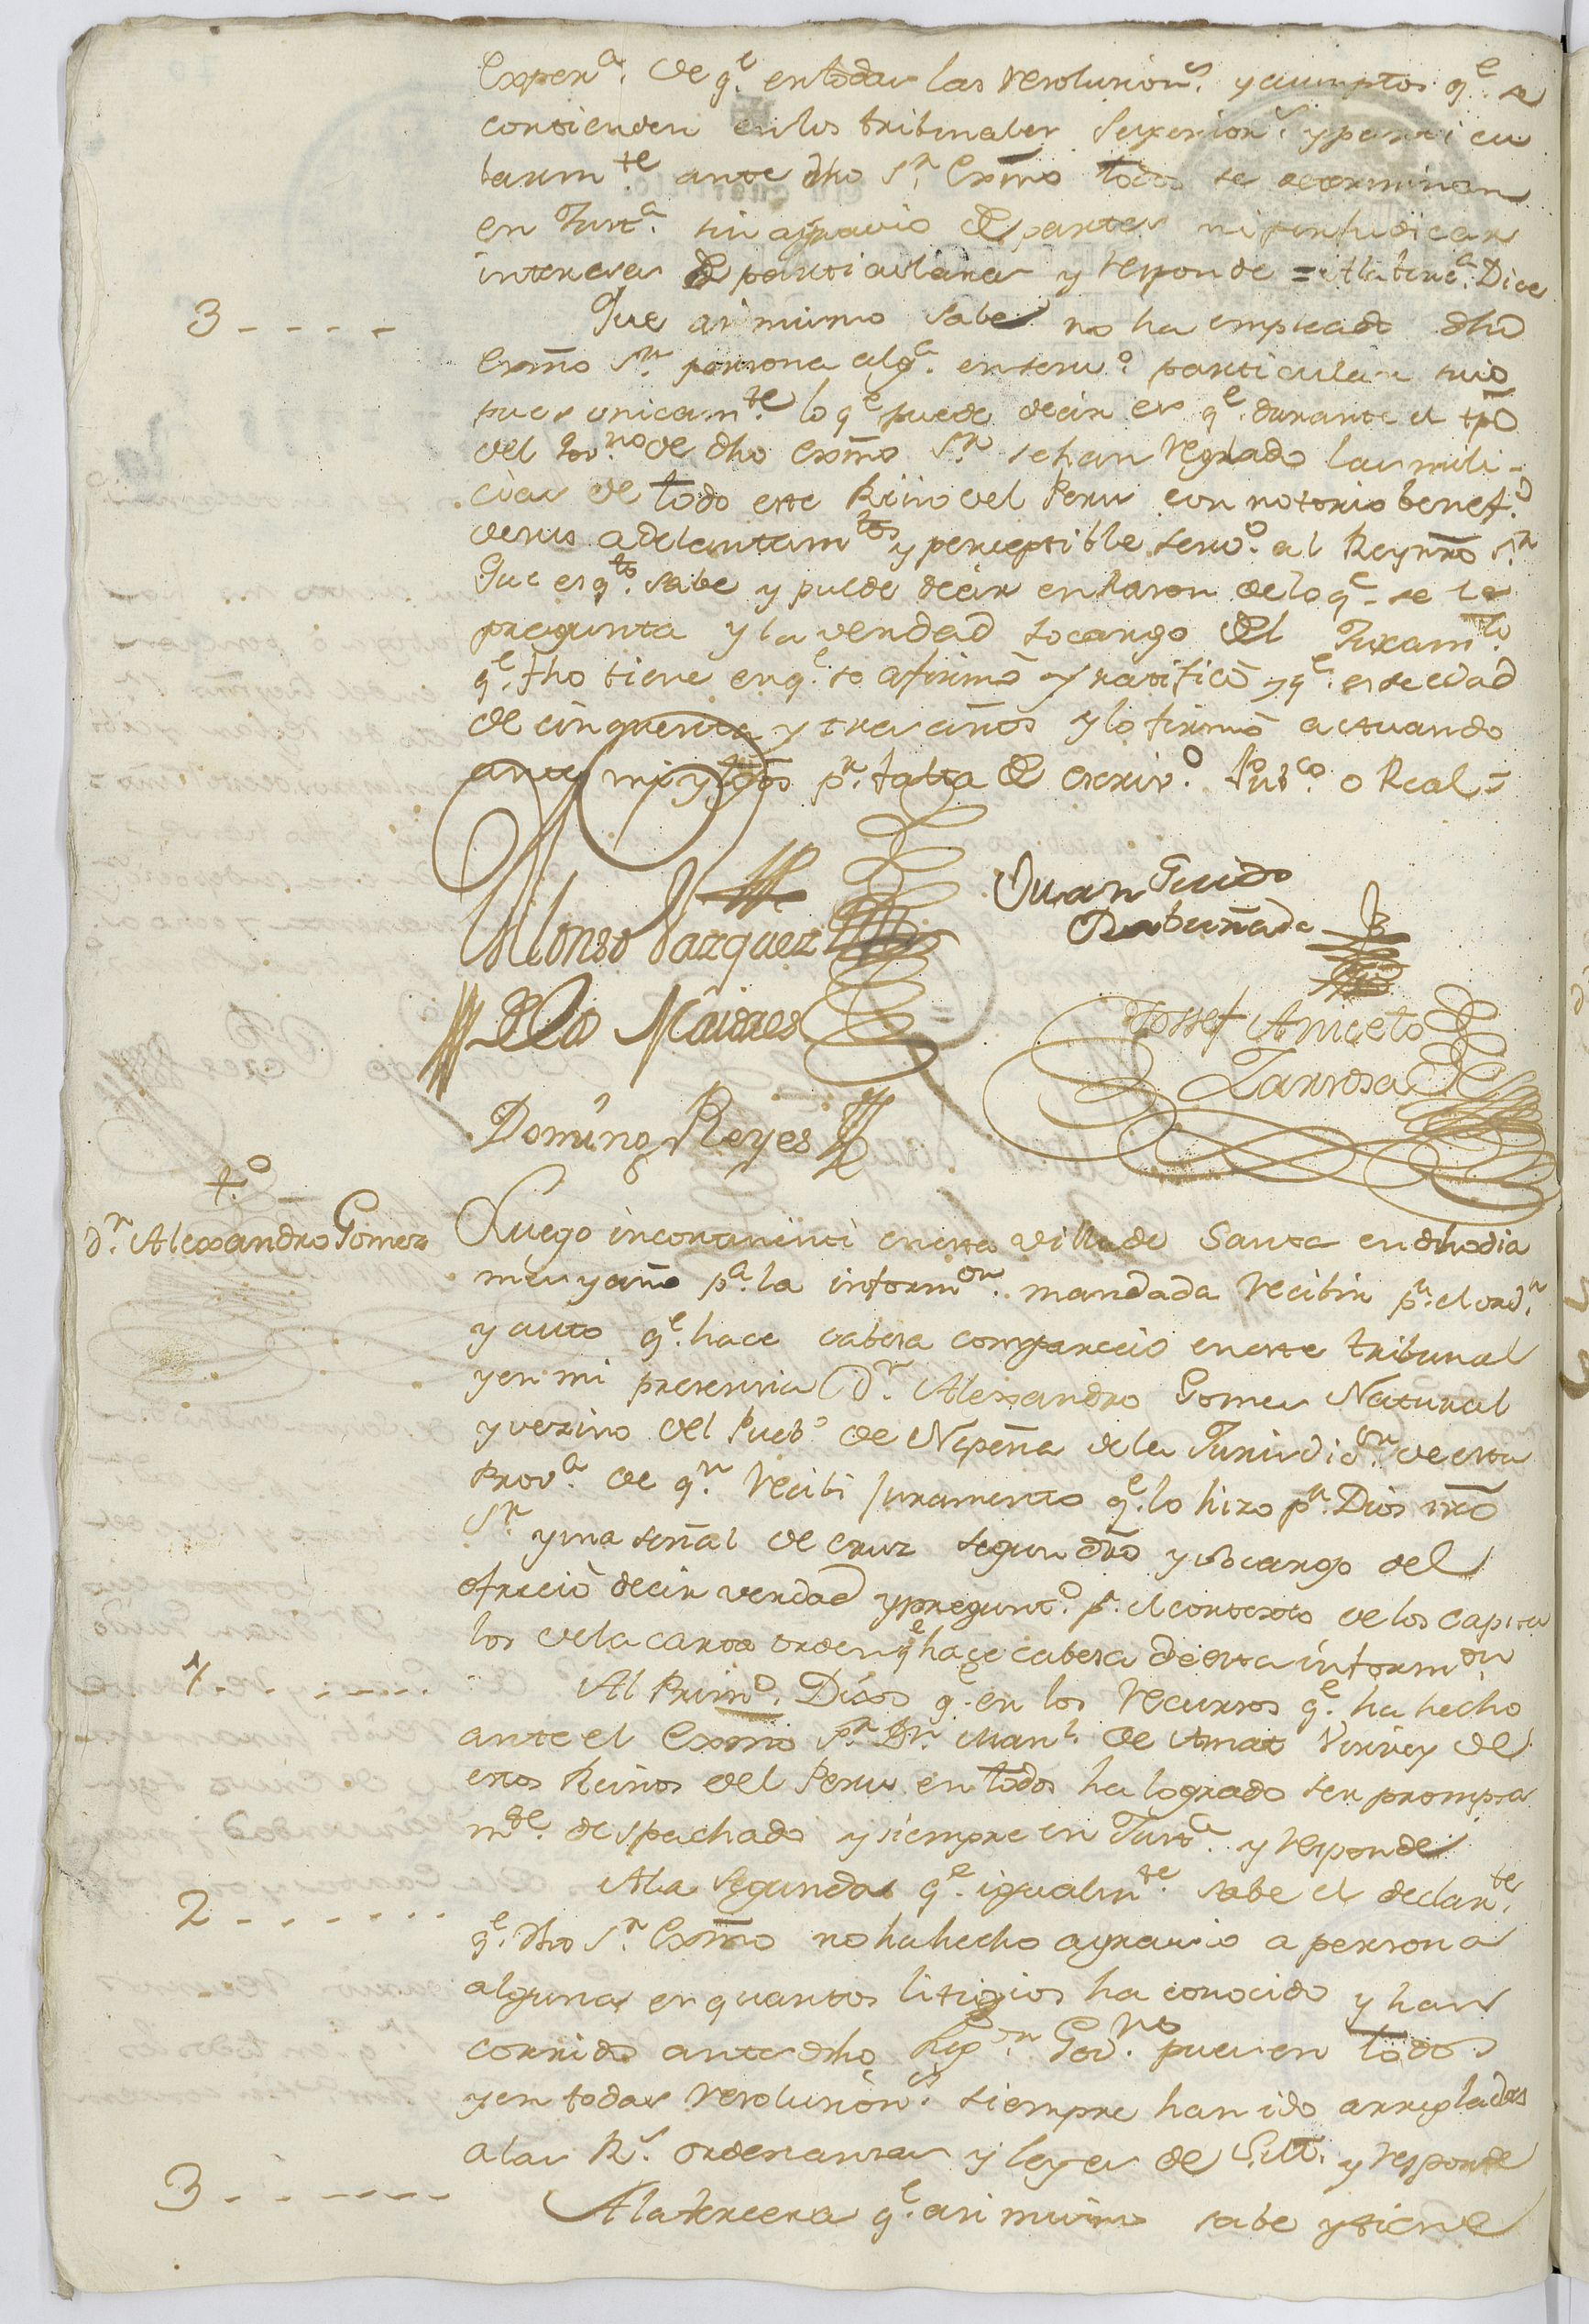 Exper.a de q.e en todas las resolucion.s y asumptos q.e se
contienden en los tribunales Superior.s y particu
larm.te ante dho S.r Exmo todos se determinan
en Just.a sin agravio de partes ni perjudicar
intereses de particulares y responde = A la terc.a Dice
3 - - - - Que asi mismo sabe no ha empleado dho
Exmo S.r persona alg.a en serv.o particular suio
pues unicam.te lo q.e puede decir es q.e durante el tpo
del Gov.no de dho Exmo S.r se han reglado las mili-
cias de todo este Reino del Peru con notorio benef.o
de sus adelantam.tos y perceptible serv.o al Rey nro S.r
Que es q.to sabe y puede decir en razon de lo q.e se le
pregunta y la verdad so cargo del Juram.to
q.e fho tiene en q.e se afirmó y ratificó y q.e es de edad
de cinquenta y tres años y lo firmó actuando
ante mi y tgos p.r falta de escriv.o Pub.co o Real =
Alonso Vazquez
Juan Guido
Rabuñade
Jossef Aniceto
Larrosa
Doming.o Reyes
t.o
d.n Alexandro Gomez
Luego incontinenti en esta villa de Santa en dho dia
mes y año p.a la inform.on mandada recibir p.r el ord.n
y auto q.e hace cabesa compareció en este tribunal
y en mi presencia D.n Alexandro Gomes Natural
y vezino del Pueb.o de Nepeña de la Jurisdic.on de esta
Prov.a de q.n recibi juramento q.e lo hizo p.r Dios nro
S.r y una señal de cruz segun dro y so cargo del
ofreció decir verdad y pregunt.o p.r el contexto de los capitu
los de la carta orden q.e hace cabesa de esta inform.on
1 - - - - - - Al Prim.o Dixo q.e en los recursos q.e ha hecho
ante el Exmo S.r D.n Man.l de Amat Virrey de
estos Reinos del Peru en todos ha logrado ser prompta
m.te despachado y siempre en Just.a y responde
2 - - - - - - A la segunda q.e igualm.te sabe el declar.te
q.e dho S.r Exmo no ha hecho agravio a persona
alguna en quantos litigios ha conocido y han
corrido ante dho Sup.or Gov.no pues en todos
y en todas resolucion.s siempre han ido arregladas
a las R.s ordenansas y leyes de S.M. y responde
3 - - - - - - A la tercera q.e asi mismo sabe y tiene